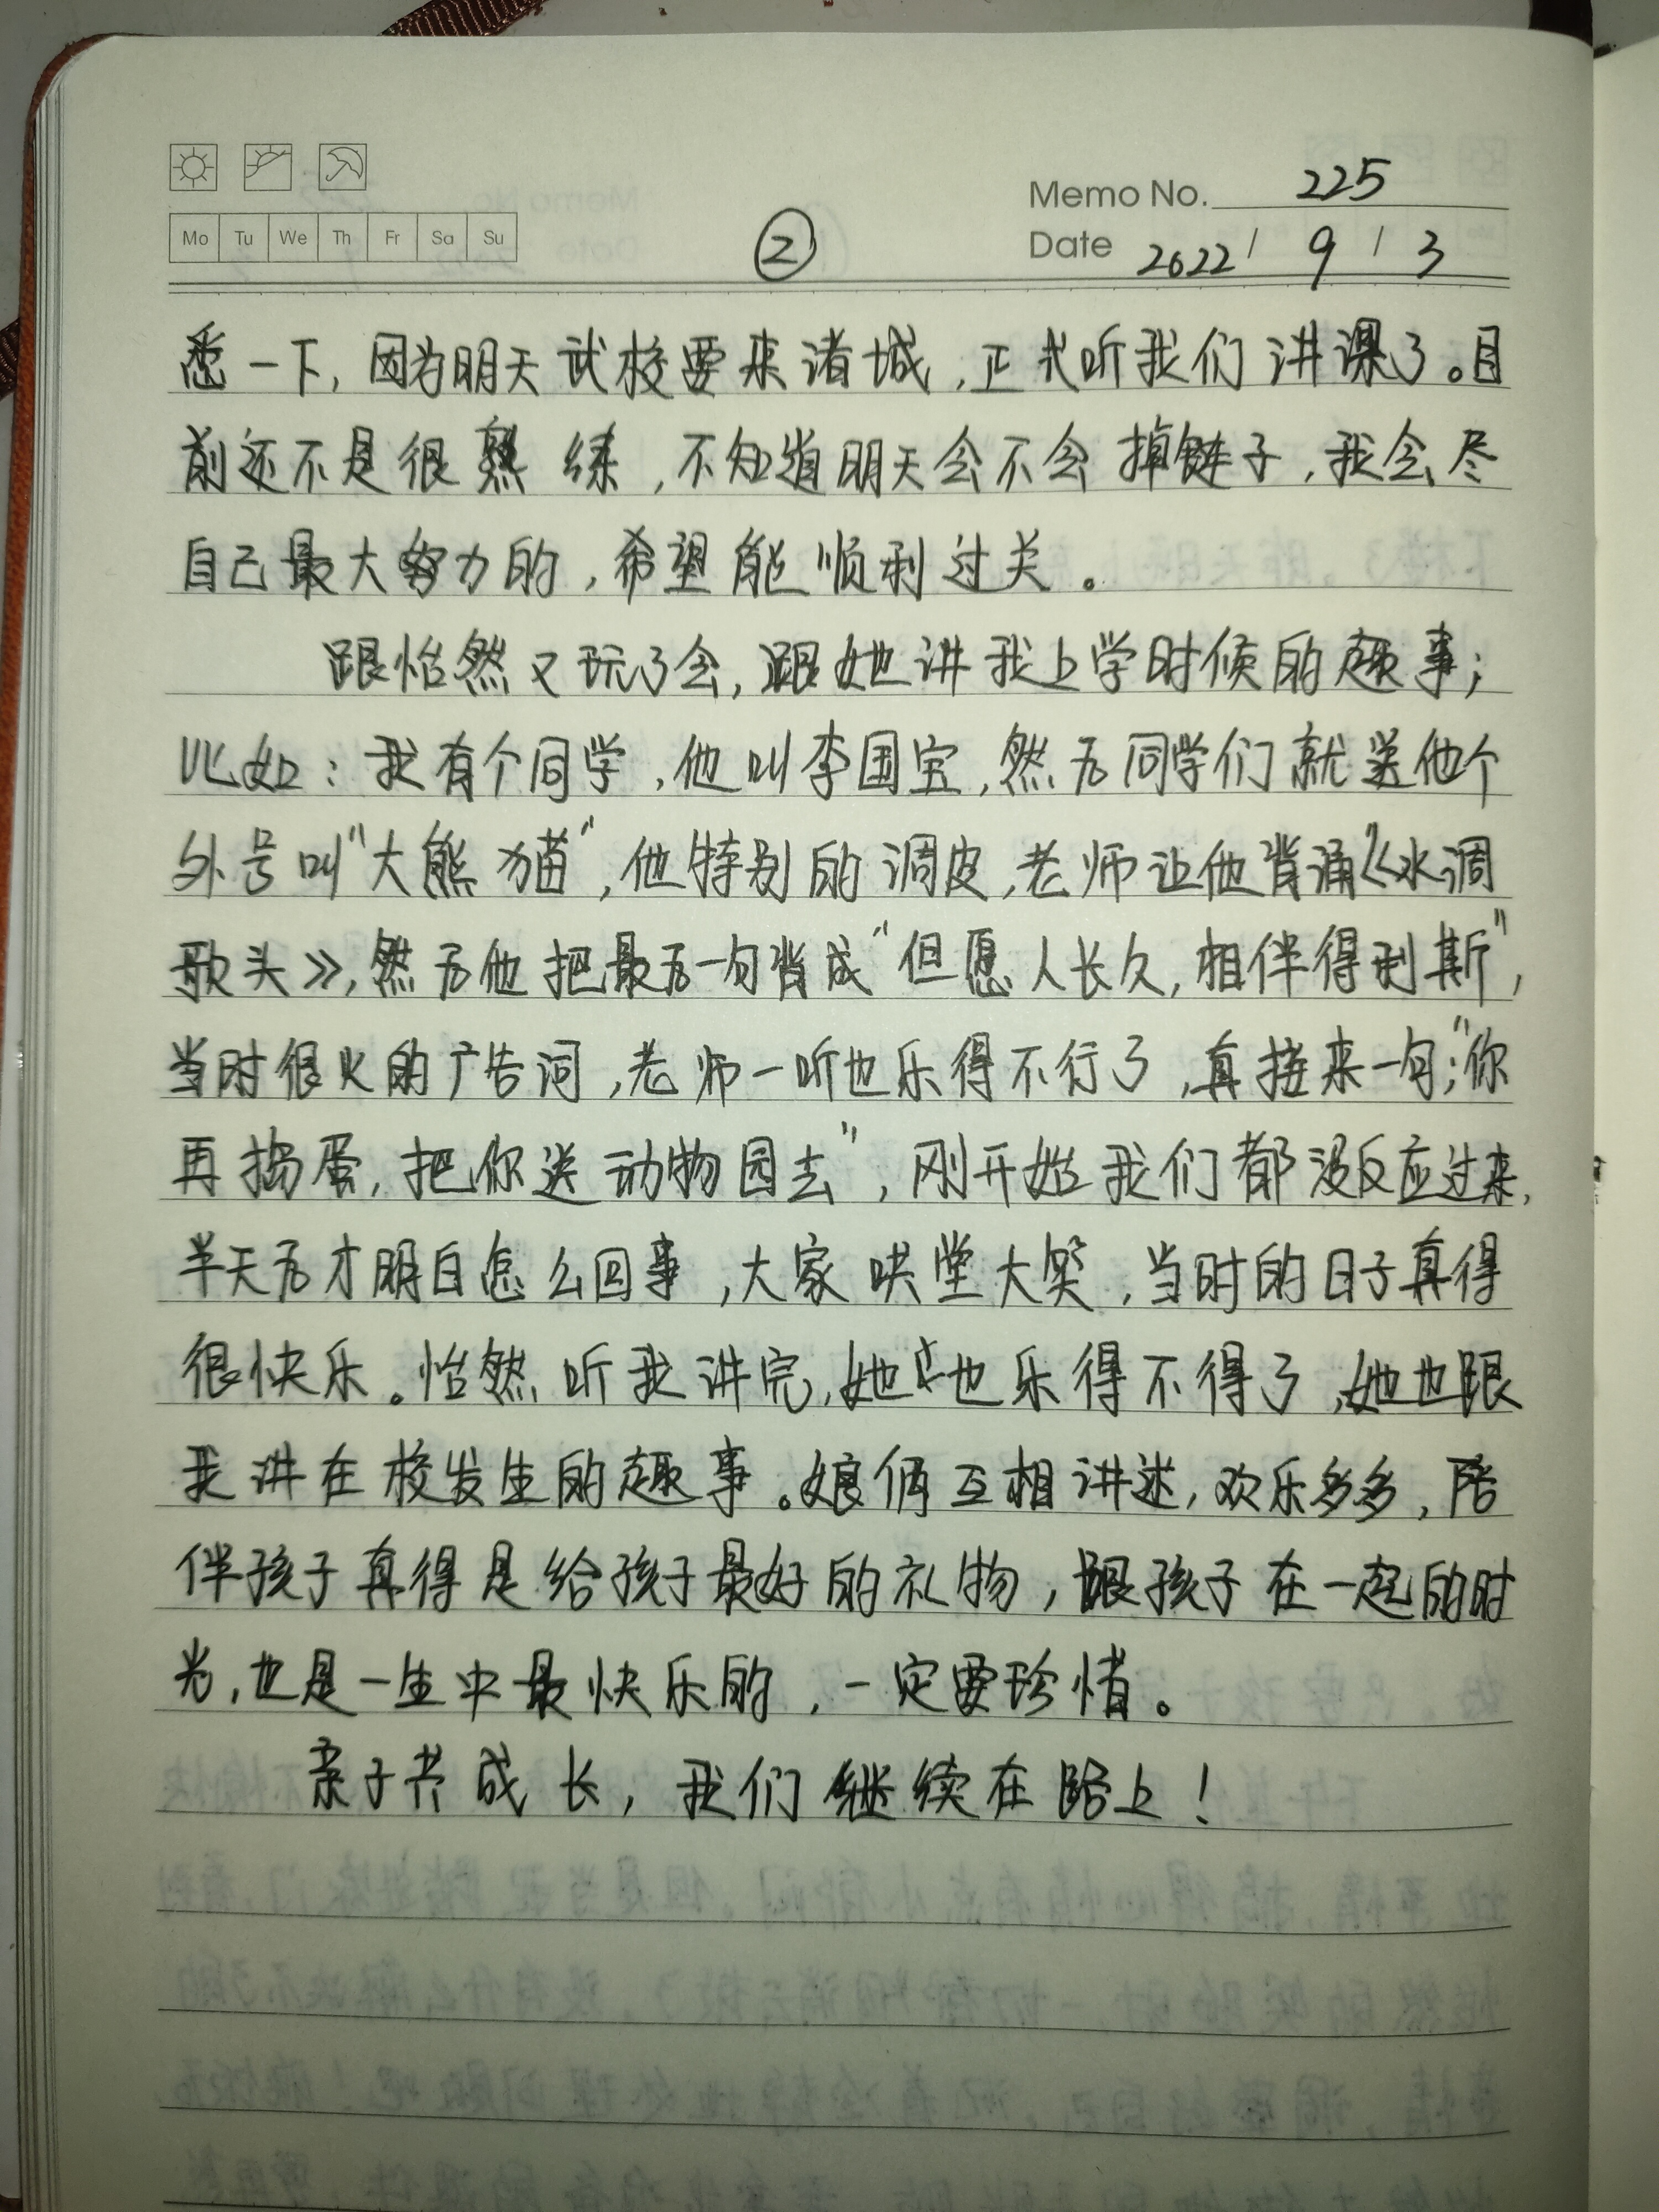 Memo No. 225
Mo Tu We Th Fr Sa Su
②
Date 2022 / 9 / 3
悉一下，因为明天武校要来诸城，正式听我们讲课了。目
前还不是很熟练，不知道明天会不会掉链子，我会尽
自己最大努力的，希望能顺利过关。
跟怡然又玩了会，跟她讲我上学时候的趣事；
比如：我有个同学，他叫李国宝，然后同学们就送他个
外号叫"大熊猫"，他特别的调皮，老师让他背诵《水调
歌头》，然后他把最后一句背成"但愿人长久，相伴得利斯"，
当时很火的广告词，老师一听也乐得不行了，直接来一句；"你
再捣蛋，把你送动物园去"，刚开始我们都没反应过来，
半天后才明白怎么回事，大家哄堂大笑，当时的日子真得
很快乐。怡然听我讲完，她也乐得不得了，她也跟
我讲在校发生的趣事。娘俩互相讲述，欢乐多多，陪
伴孩子真得是给孩子最好的礼物，跟孩子在一起的时
光，也是一生中最快乐的，一定要珍惜。
亲子共成长，我们继续在路上！